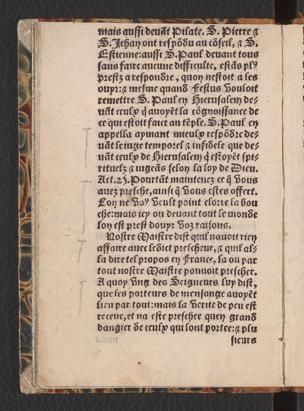 mais aussi devāt Pilate. S. Pierre ⁊
S. Jehan ont respōdu au cōseil, ⁊ S.
Estienne: aussi S. Paul devant tous
sans faire aucune difficulte, estās plꝰ
prestz a respondre, quoy nestoit a les
ouyr: ⁊ mesme quand Festus vouloit
remettre S. Paul en Hierusalem de-
vāt ceulx q̄ avoyēt la cōgnoissance de
ce qui estoit faict au tēple. S. Paul en
appella aymant mieulx respōdre de-
vāt le iuge temporel ⁊ infidele que de-
vāt ceulx de Hierusalem q̄ estoyēt spi-
rituelz ⁊ iugeās selon la loy de Dieu.
Act. 25. Pourtāt maintenez ce q̄ vous
avez presche, ainsi q̄ vous estes offert.
Lon ne voꝰ veult point clorre la bou
che: mais icy ou devant tout le monde
lon est prest douyr voz raisons.
Nostre Maistre dist quil navoit rien
affaire avec ledict prescheur, ⁊ quil al-
la dire tel propos en France, la ou par
tout nostre Maistre pouvoit prescher.
A quoy ung des Seigneurs luy dist,
que les porteurs de mensonge avoyēt
lieu par tout: mais la verite de peu est
receue, et na este preschee quen grand
dangier de ceulx qui lont portee: ⁊ plu
sieurs